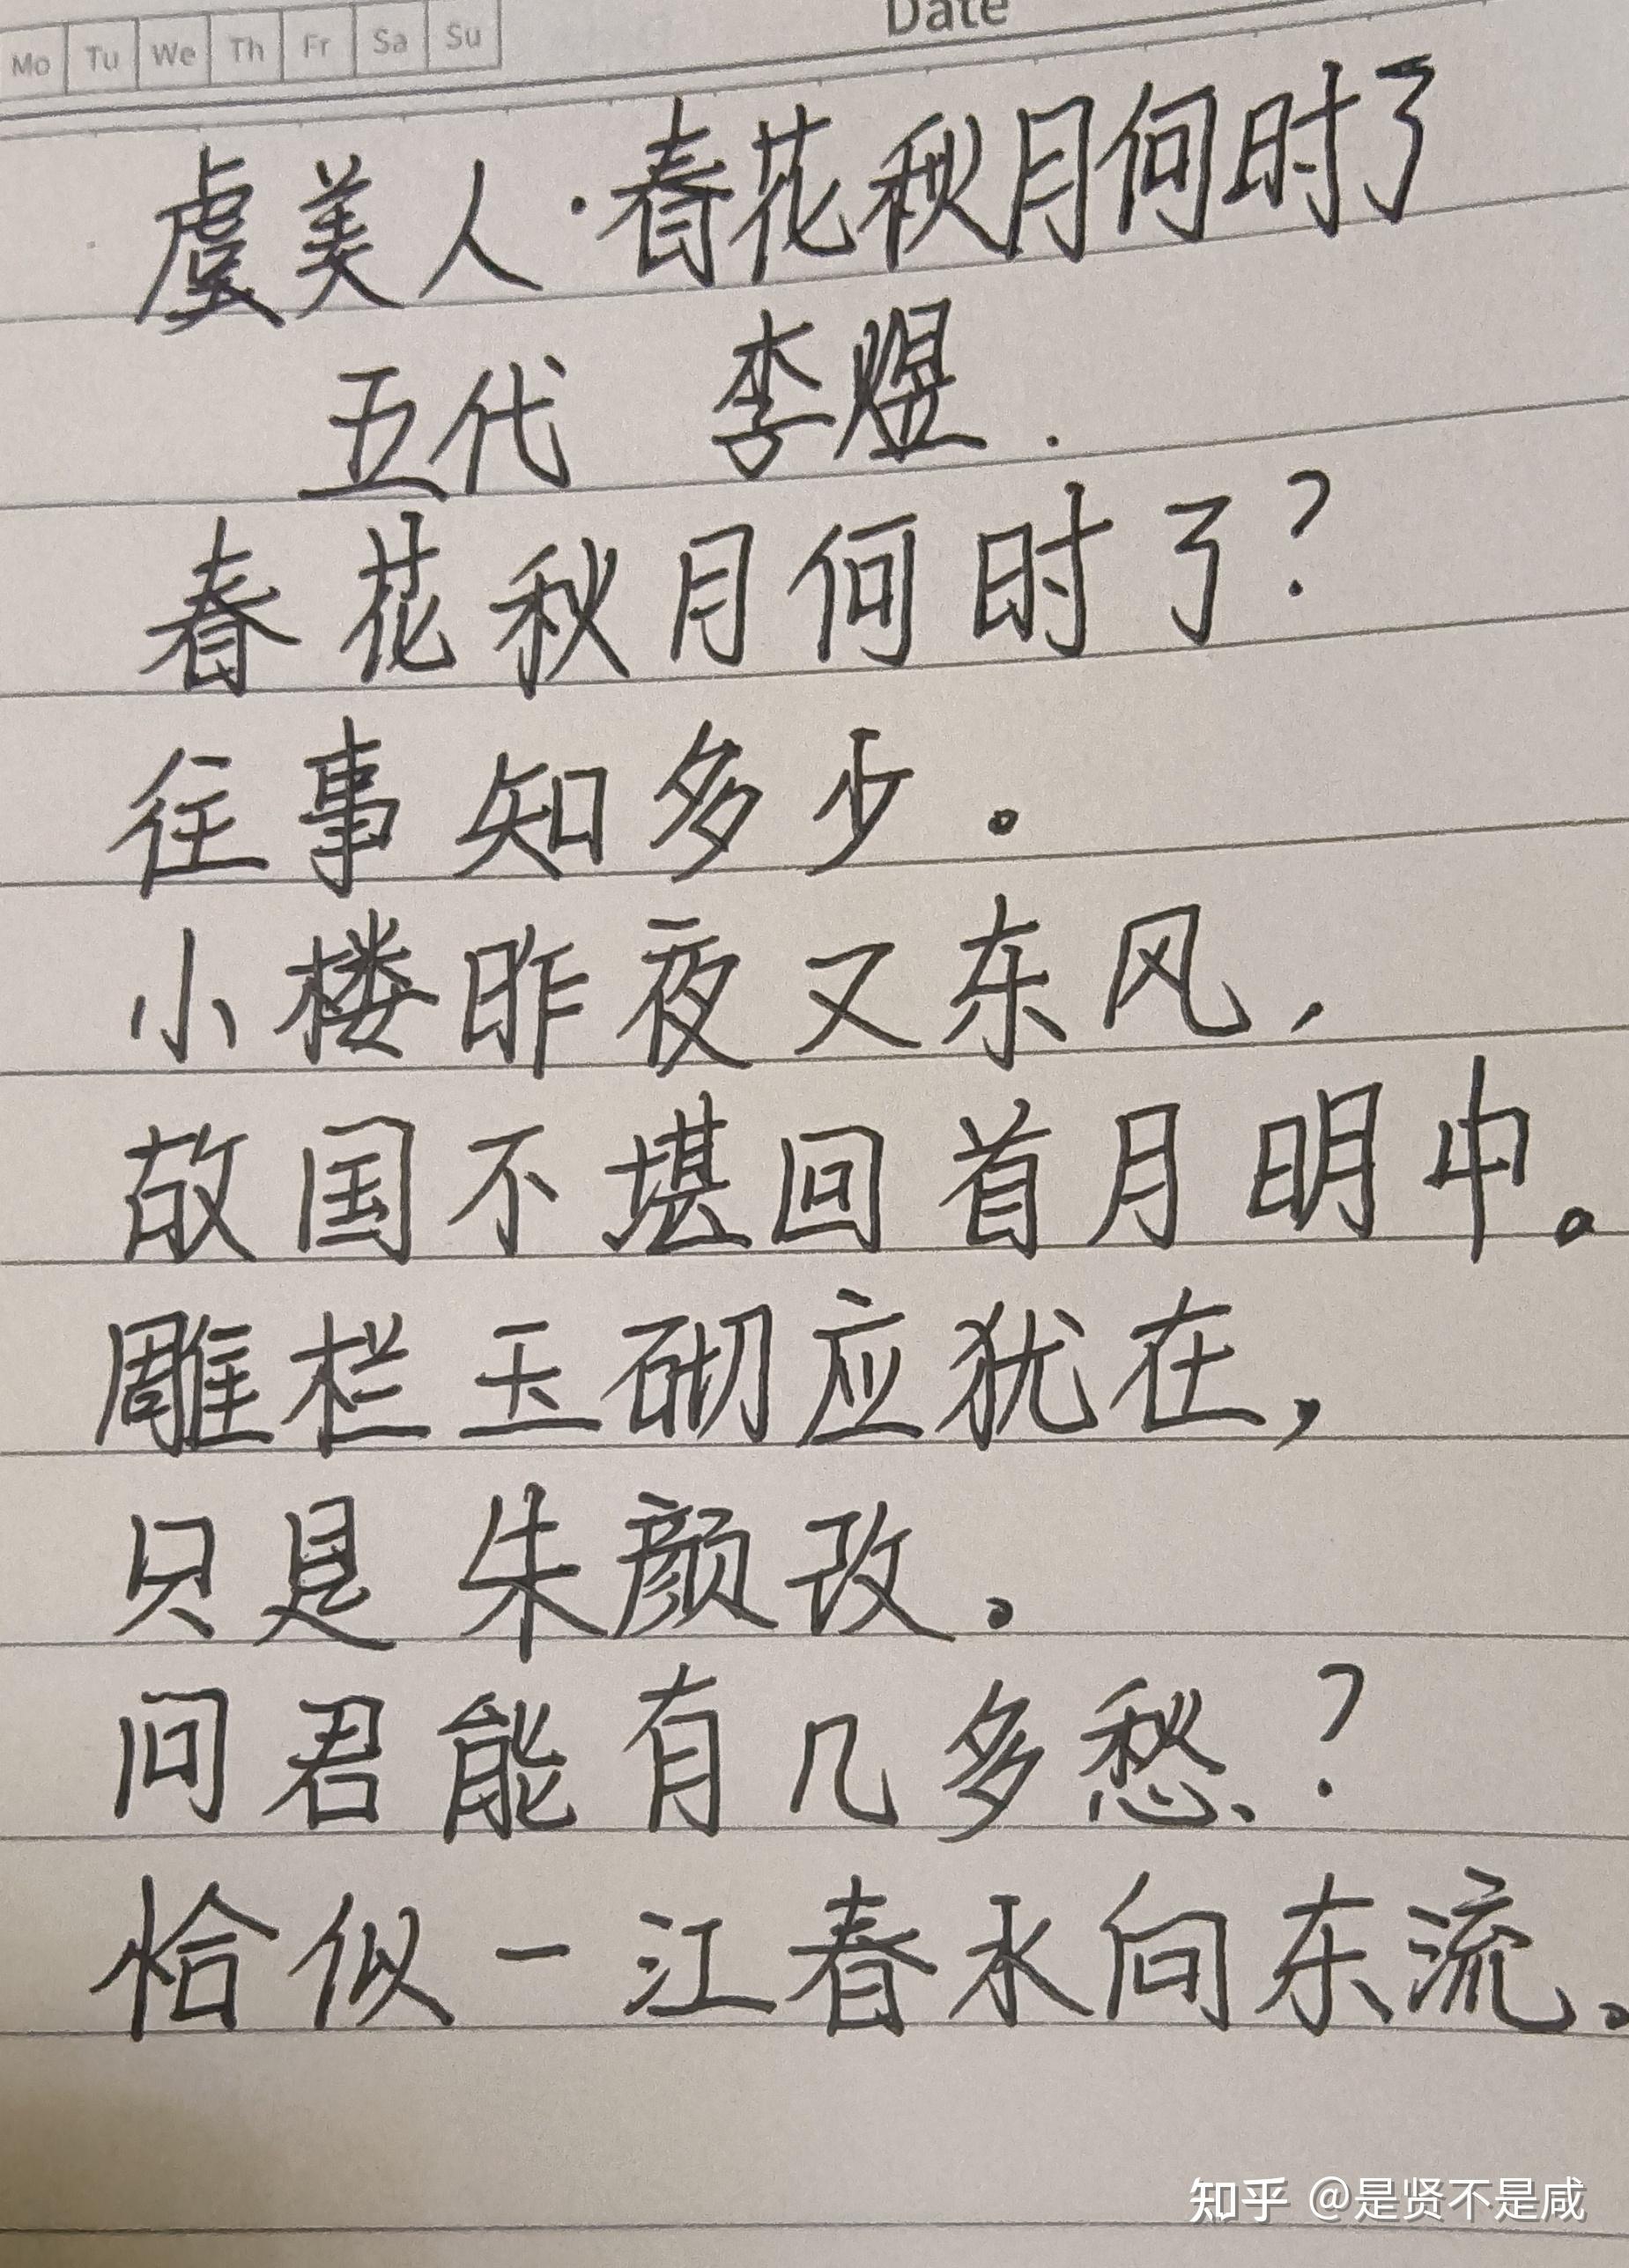 Mo Tu We Th Fr Sa Su Date
虞美人·春花秋月何时了
五代 李煜.
春花秋月何时了?
往事知多少。
小楼昨夜又东风,
故国不堪回首月明中。
雕栏玉砌应犹在,
只是朱颜改。
问君能有几多愁?
恰似一江春水向东流。
知乎 @是贤不是咸